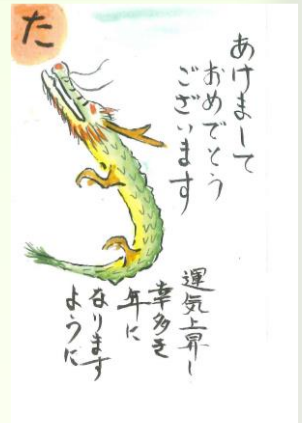 た
あけまして
おめでとう
ございます
運気上昇し
幸多き
年に
なります
ように